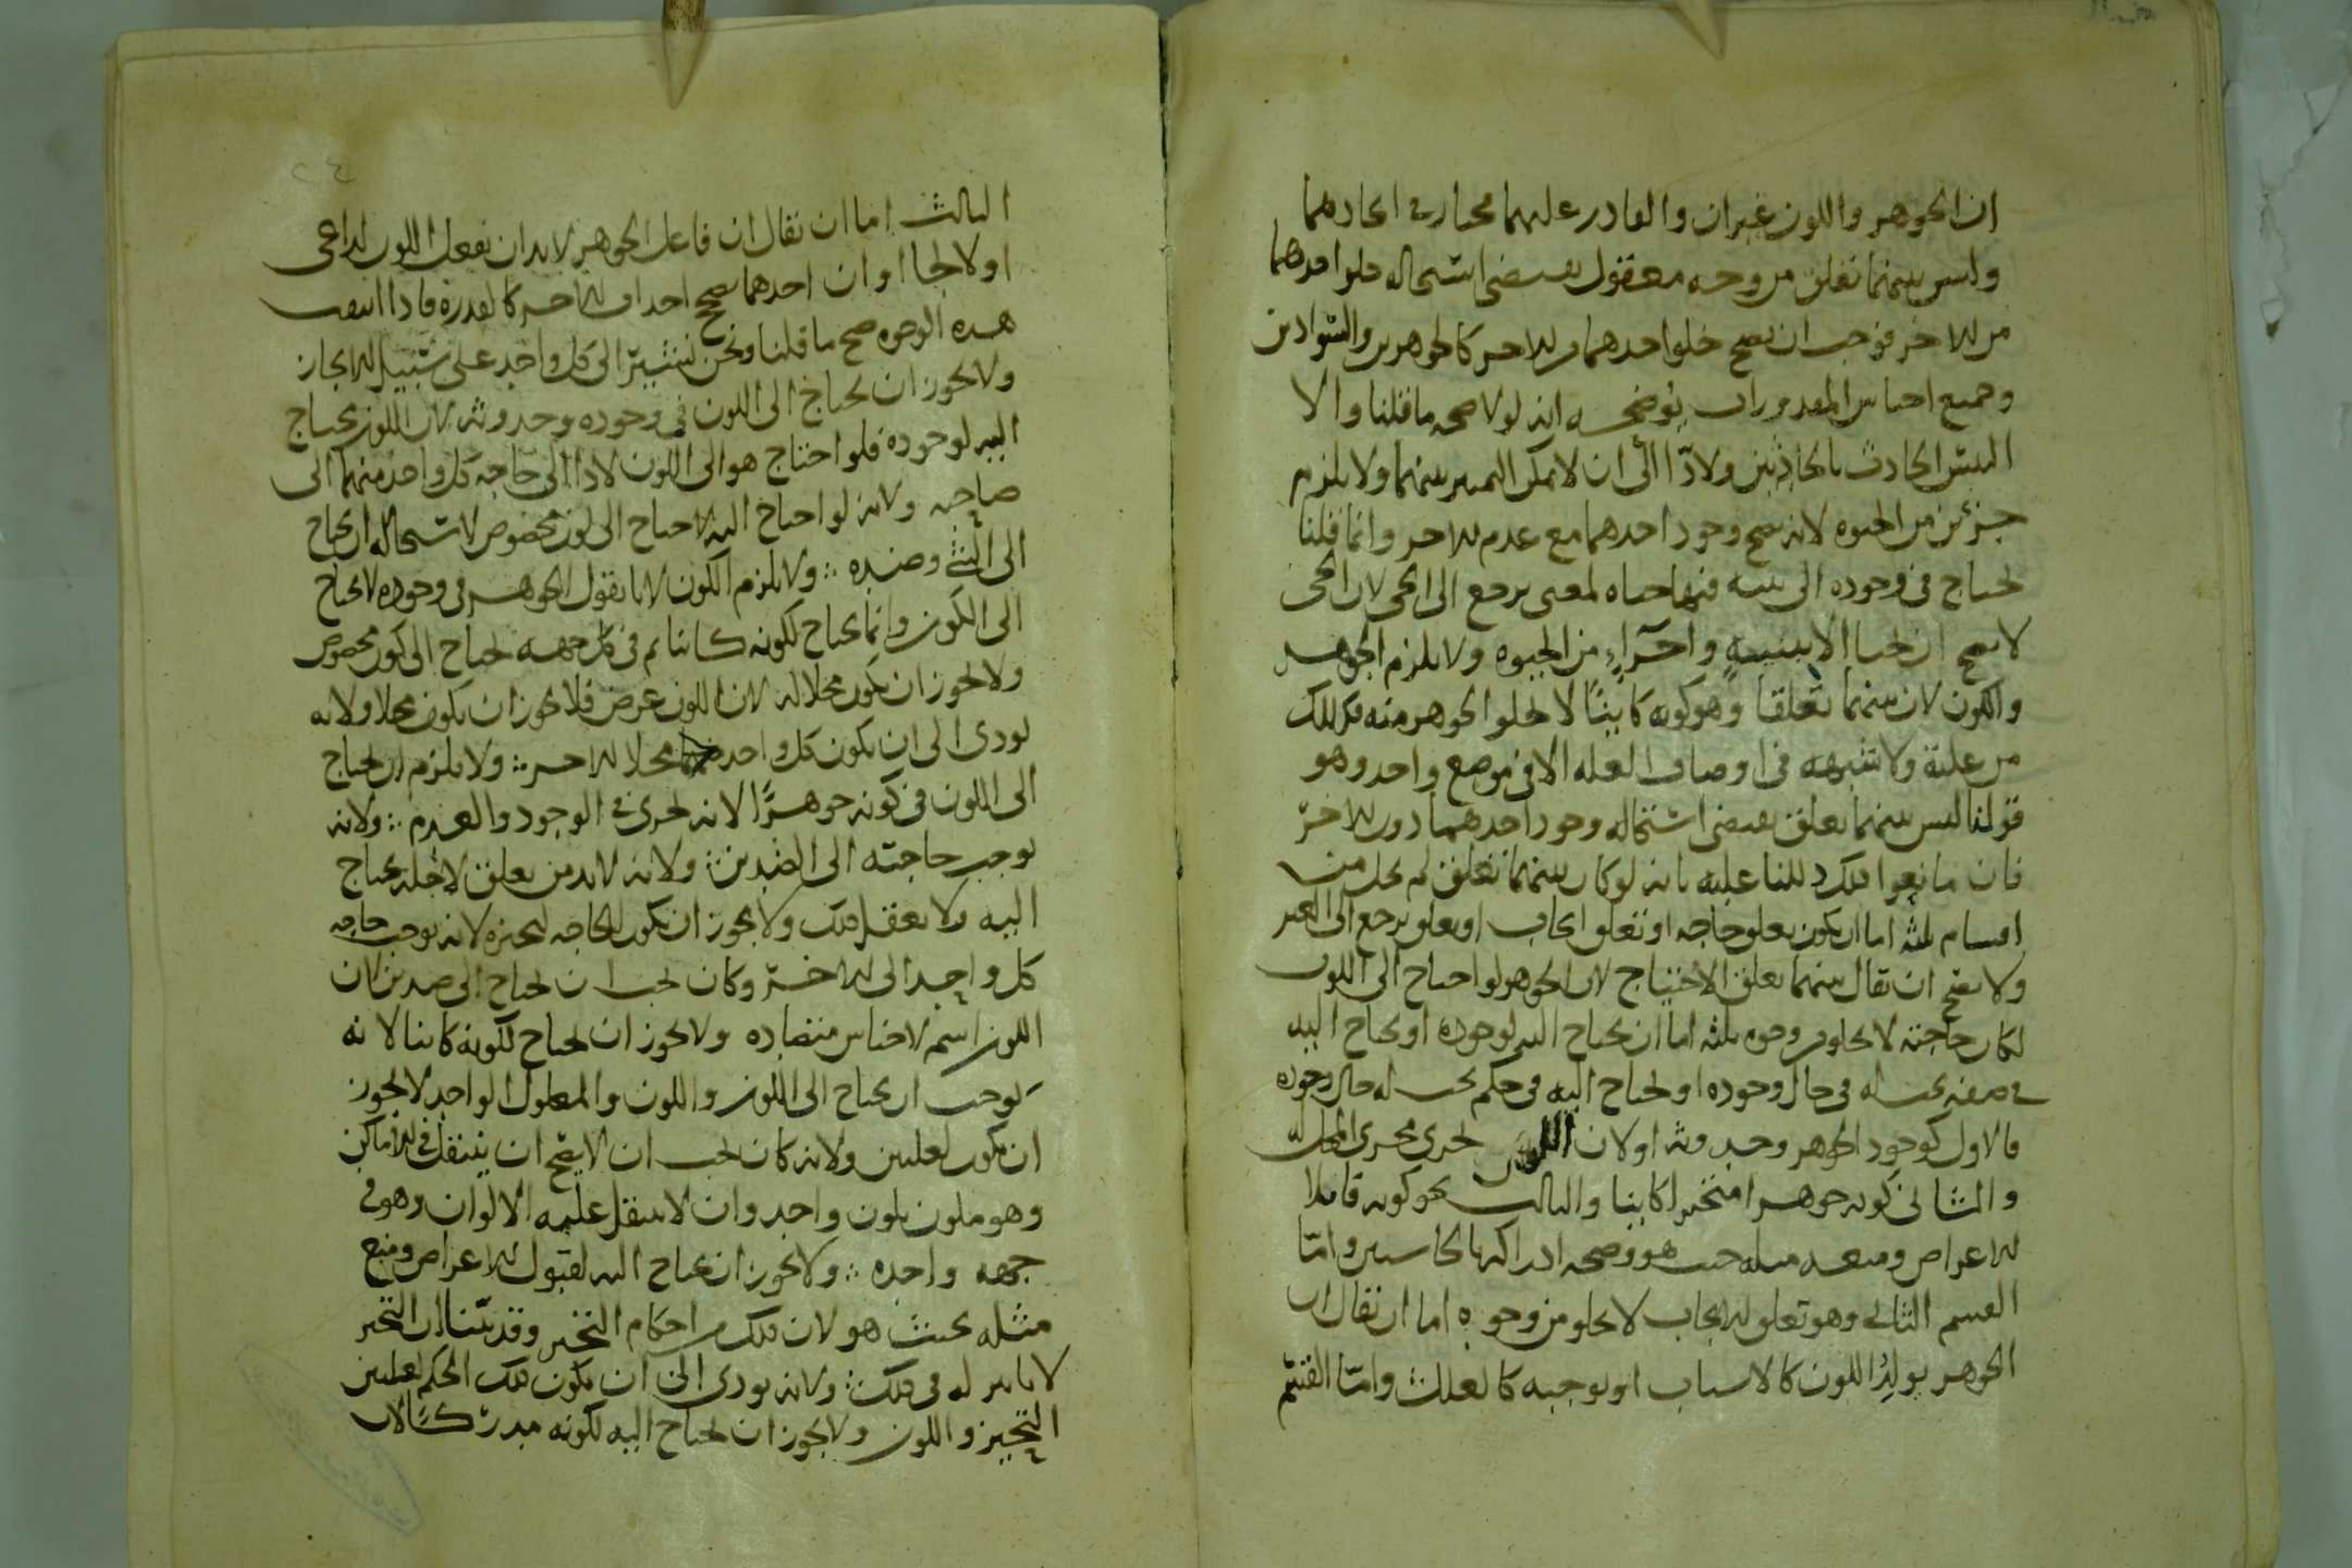 ان الجوهر واللون غيران والقادر عليهما مختار في ايجادهما
وليس بينهما تعلق من وجه معقول يقتضي استحاله خلو احدهما
من الاخر فوجب ان يصح خلو احدهما من الاخر كالجوهرين والسوادين
وجميع اجناس المقدورات يوضحه انه لولا صحه ما قلنا والا
التبس الحادث بالحادثين ولادّا الى ان لا يمكن التمييز بينهما ولا يلزم
جزئين من الحيوه لانه يصح وجود احدهما مع عدم الاخر وانما قلنا
يحتاج في وجوده الى بنيه فيها حياه لمعنى يرجع الى الحي لان الحي
لا يصح ان يحيا الا ببنيةٍ واجزاءٍ من الحيوه ولا يلزم الجوهر
والكون لان بينهما تعلقا وهو كونه كاينًا لا يخلوا الجوهر منه فكذلك
من علية ولا تشبهه في اوصاف العله الا في موضع واحد وهو
قولنا ليس بينهما تعلق يقتضي استحاله وجود احدهما دون الاخر
فان مانعوا ذلك دللنا عليه بانه لو كان بينهما تعلق لم يخل من
اقسام ثلثه اما ان يكون تعلق حاجه او تعلق ايجاب او تعلق يرجع الى الغير
ولا يصح ان يقال بينهما تعلق الاحتياج لان الجوهر لو احتاج الى اللون
لكان حاجته لا يخلو من وجوه ثلثه اما ان يحتاج اليه لوجوده او يحتاج اليه
في صفه يجب له في حال وجوده او يحتاج اليه في حكم يجب له حال وجوده
فالاول كوجود الجوهر وحدوثه اولان اللون يجري مجرى المحل له
والثاني كونه جوهرا متحيزا كاينا والثالث نحو كونه قابلا
للاعراض ومنعه مثله حيث هو وصحه ادراكه بالحاستين وامّا
القسم الثاني وهو تعلق الايجاب لا يخلو من وجوه اما ان يقال ان
الجوهر يولِدُ اللون كالاسباب او يوجبه كالعلل وامّا القسم
الثالث اما ان يقال ان فاعل الجوهر لابد ان يفعل اللون لداعي
او لالجا او ان احدهما يصحح احداث الاخر كالقدره فاذا انتفت
هذه الوجوه صح ما قلنا ونحن نشير الى كل واحد على سبيل الايجاز
ولا يجوز ان يحتاج الى اللون في وجوده وحدوثه لان اللون يحتاج
اليه لوجوده فلو احتاج هو الى اللون لادا الى حاجه كل واحد منهما الى
صاحبه ولانه لو احتاج اليه لاحتاج الى لون مخصوص لاستحاله ان يحتاج
الى الشي وضده ؞ ولا يلزم الكون لانا نقول الجوهر في وجوده لا يحتاج
الى الكون وانما يحتاج لكونه كاينا ثم في كل جهه يحتاج الى كون مخصوص
ولا يجوز ان يكون محلا له لان اللون عرض فلا يجوز ان يكون محلا ولانه
يودي الى ان يكون كل واحد محلا للاخر ؞ ولا يلزم ان يحتاج
الى اللون في كونه جوهرًا لانه يجري في الوجود والعدم ؞ ولانه
يوجب حاجته الى الضدين ؞ ولانه لابد من تعلق لاجله يحتاج
اليه ولا يعقل ذلك ولا يجوز ان تكون الحاجه لتحيزه لانه يوجب حاجه
كل واحد الى الاخر وكان يجب ان يحتاج الى ضدين لان
اللون اسم لاجناس متضاده ولا يجوز ان يحتاج لكونه كاينا لانه
يوجب ان يحتاج الى الكون واللون والمعلول الواحد لا يجوز
ان يكون لعلتين ولانه كان يجب ان لا يصح ان ينتقل في الاماكن
وهو ملون بلون واحد وان لا ينتقل عليه الالوان وهو في
جهه واحده ؞ ولا يجوز ان يحتاج اليه لقبول الاعراض ومنع
مثله بحيث هو لان ذلك من احكام التحيز وقد بيّنا ان التحيز
لا تاثير له في ذلك ؞ ولانه يودي الى ان يكون ذلك الحكم لعلتين
التحيز واللون ولا يجوز ان يحتاج اليه لكونه مدركا لان